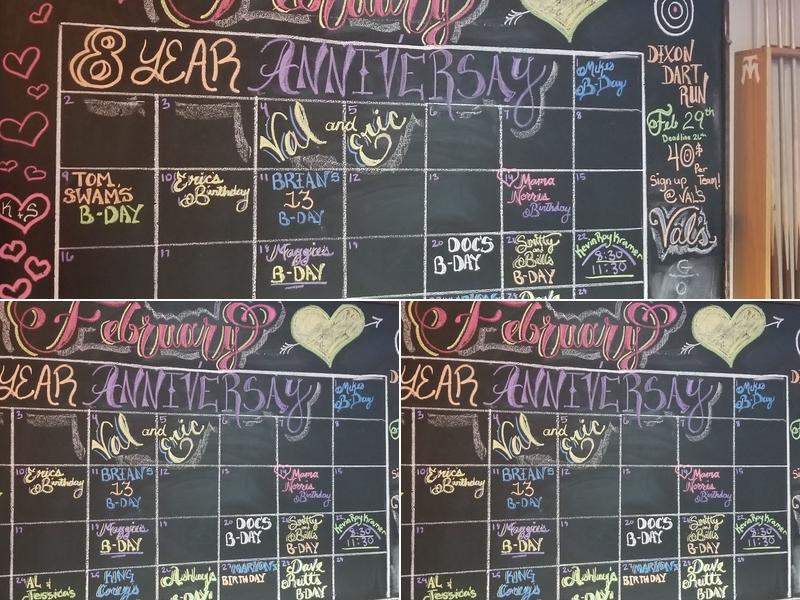 February
8 YEAR ANNIVERSAY
Mike's
B-Day
2 3 4 5 6 7 8
Val and Eric
9 10 11 12 13 14 15
TOM
SWAM'S
B-DAY
Eric's
Birthday
BRIAN'S
13
B-DAY
Mama
Norris
Birthday
16 17 19 20 22
Maggie's
B-DAY
DOC'S
B-DAY
Smitty
and
Bill's
B-DAY
Kevin Roy Kramer
8:30
11:30
K + S
DIXON
DART
RUN
Feb 29th
40$
Per
Team!
Sign up
@ VAL'S
Val's
February
YEAR ANNIVERSAY
Mike's
B-Day
3 4 5 6 7 8
Val and Eric
10 11 12 13 14 15
Eric's
Birthday
BRIAN'S
13
B-DAY
Mama
Norris
Birthday
17 19 20 22
Maggie's
B-DAY
DOC'S
B-DAY
Smitty
and
Bill's
B-DAY
Kevin Roy Kramer
8:30
11:30
AL &
Jessica's
KING
Corey's
Ashley's
B-DAY
BIRTHDAY
Dave
Rutts
B-DAY
February
YEAR ANNIVERSAY
Mike's
B-Day
3 4 5 6 7 8
Val and Eric
10 11 12 13 14 15
Eric's
Birthday
BRIAN'S
13
B-DAY
Mama
Norris
Birthday
17 19 20 22
Maggie's
B-DAY
DOC'S
B-DAY
Smitty
and
Bill's
B-DAY
Kevin Roy Kramer
8:30
11:30
AL &
Jessica's
KING
Corey's
Ashley's
B-DAY
BIRTHDAY
Dave
Rutts
B-DAY